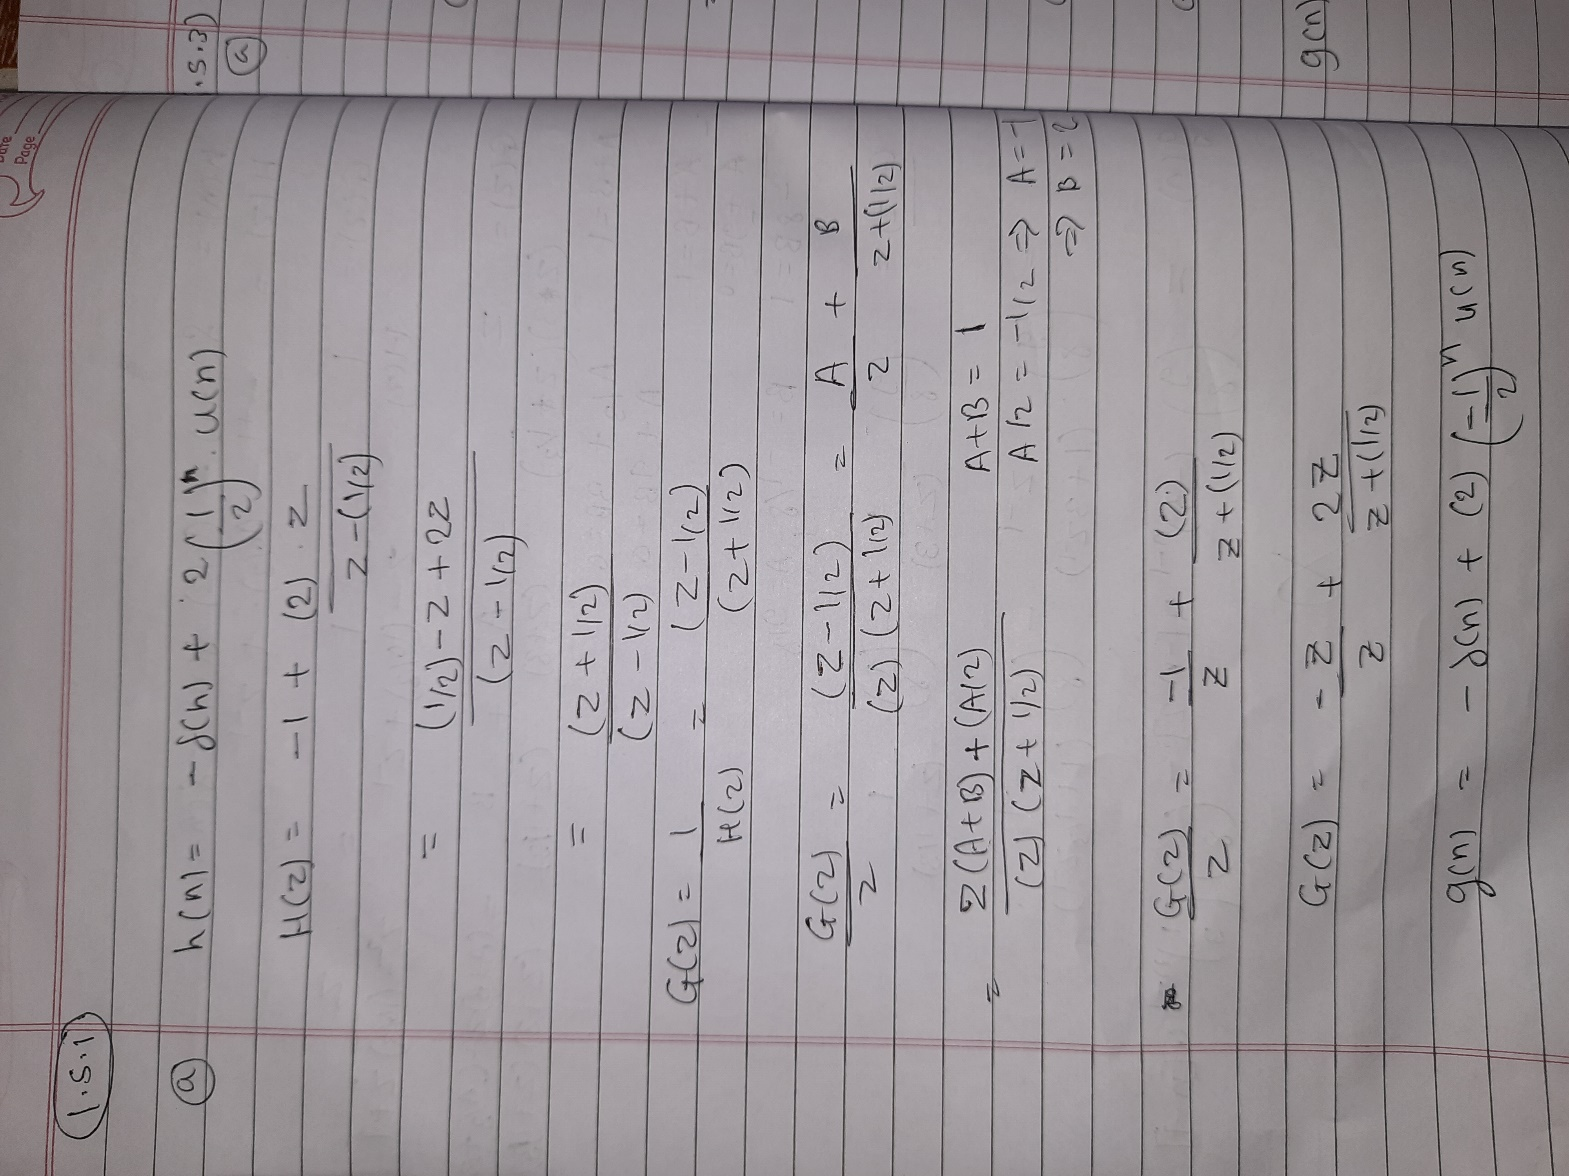 Date
Page
1.5.1
(a) h(n) = -δ(n) + 2 (1/2)^n . u(n)
H(z) = -1 + (2) . z / z-(1/2)
= (1/2) - z + 2z / (z - 1/2)
= (z + 1/2) / (z - 1/2)
G(z) = 1 / H(z) = (z - 1/2) / (z + 1/2)
G(z) / z = (z - 1/2) / (z) (z + 1/2) = A / z + B / z+(1/2)
= z(A+B) + (A/2) / (z) (z + 1/2) A+B = 1
A/2 = -1/2 => A = -1
=> B = 2
G(z) / z = -1 / z + (2) / z + (1/2)
G(z) = - z / z + 2z / z + (1/2)
g(n) = - δ(n) + (2) (-1/2)^n u(n)
.5.3)
(a)
g(n)